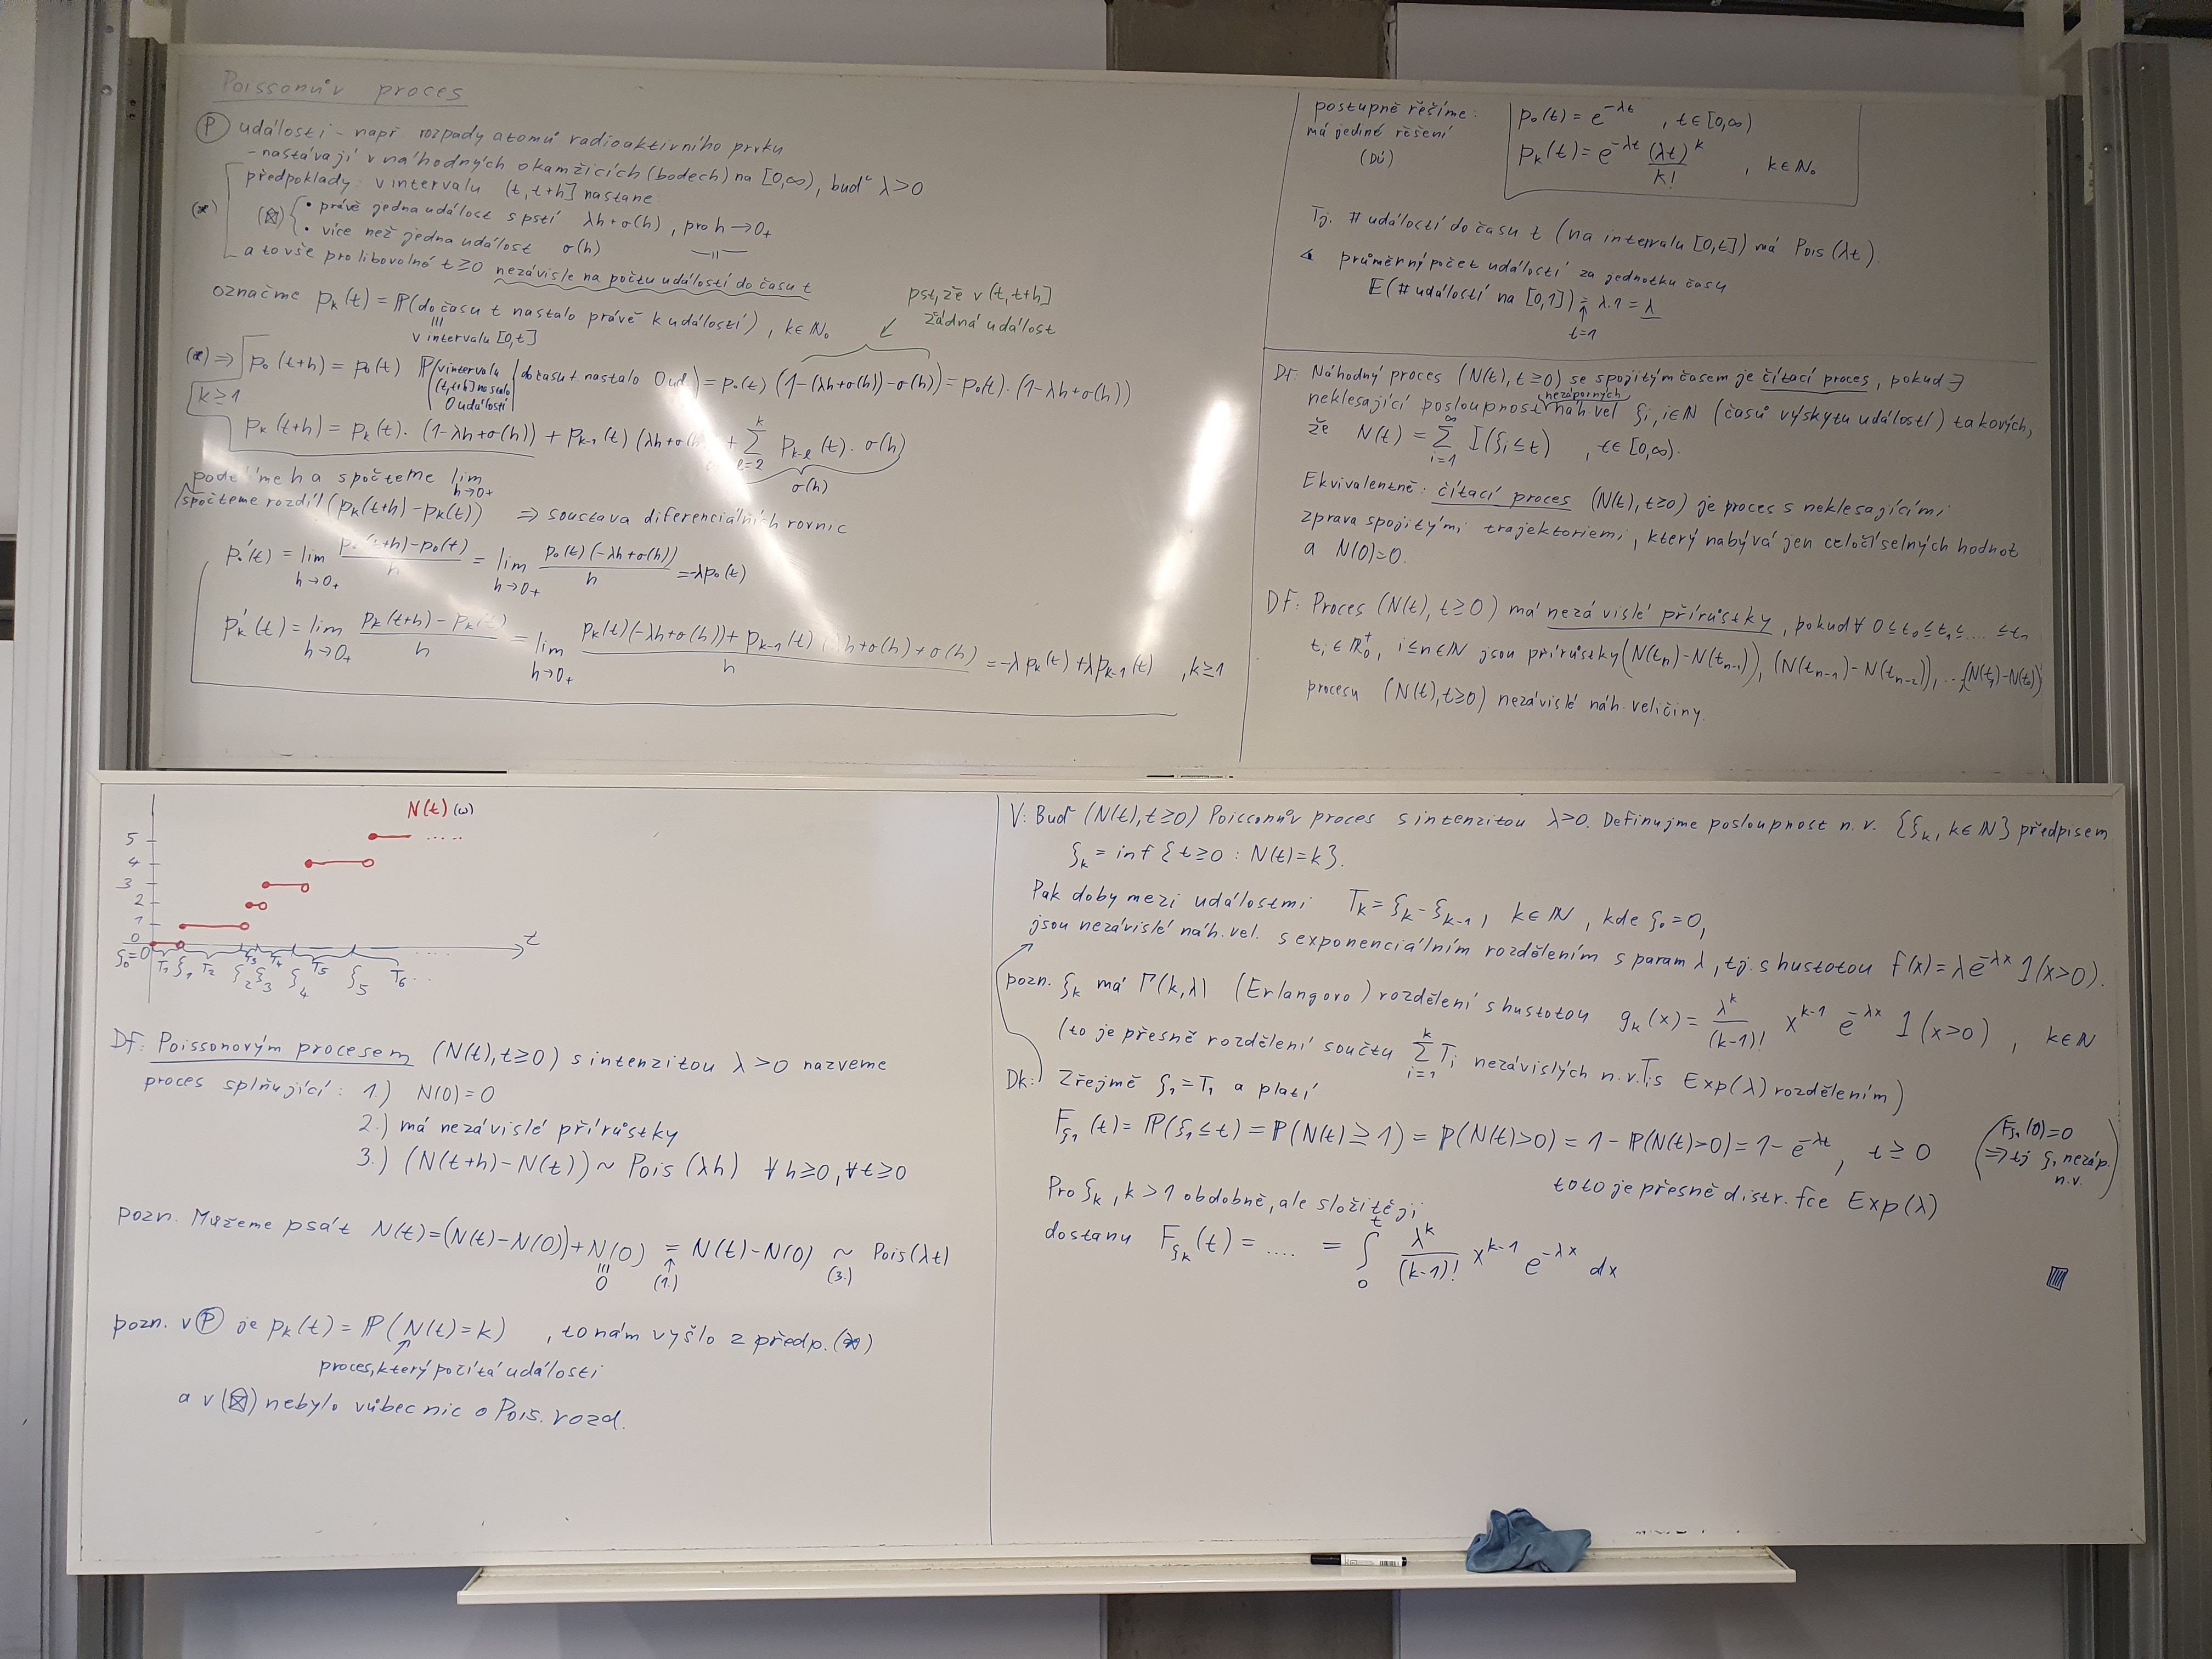 Poissonův proces
Ⓟ události - např rozpady atomů radioaktivního prvku
- nastávají v náhodných okamžicích (bodech) na [0,∞), buď λ>0
předpoklady v intervalu (t,t+h] nastane:
(*) (⊠) { • právě jedna událost s pstí λh+σ(h), pro h→0+
• více než jedna událost σ(h) —||—
a to vše pro libovolné t≥0 nezávisle na počtu událostí do času t
označme pₖ(t) = ℙ(do času t nastalo právě k událostí), k∈ℕ₀
v intervalu [0,t]
pst, že v (t,t+h]
žádná událost
(*) ⇒ p₀(t+h) = p₀(t) ℙ(v intervalu (t,t+h] nastalo 0 událostí | do času t nastalo 0 ud.) = p₀(t) (1-(λh+σ(h))-σ(h)) = p₀(t)·(1-λh+σ(h))
k≥1
pₖ(t+h) = pₖ(t)·(1-λh+σ(h)) + pₖ₋₁(t) (λh+σ(h)) + Σ_{ℓ=2}^{k} p_{k-ℓ}(t)·σ(h)
σ(h)
podělíme h a spočteme lim h→0+
spočteme rozdíl (pₖ(t+h)-pₖ(t)) ⇒ soustava diferenciálních rovnic
p₀'(t) = lim_{h→0+} (p₀(t+h)-p₀(t))/h = lim_{h→0+} p₀(t)(-λh+σ(h))/h = -λp₀(t)
pₖ'(t) = lim_{h→0+} (pₖ(t+h)-pₖ(t))/h = lim_{h→0+} (pₖ(t)(-λh+σ(h))+pₖ₋₁(t)(λh+σ(h)+σ(h))/h = -λpₖ(t)+λpₖ₋₁(t), k≥1
postupně řešíme:
má jediné řešení
(DÚ)
p₀(t) = e^{-λt}, t∈[0,∞)
pₖ(t) = e^{-λt} (λt)^k/k!, k∈ℕ₀
Tj. # událostí do času t (na intervalu [0,t]) má Pois(λt).
průměrný počet událostí za jednotku času
E(# událostí na [0,1]) = λ.1 = λ
↑
t=1
Df: Náhodný proces (N(t),t≥0) se spojitým časem je čítací proces, pokud ∃
nezáporných
neklesající posloupnost náh. vel ξᵢ, i∈ℕ (časů výskytu událostí) takových,
že N(t) = Σ_{i=1}^{∞} I(ξᵢ≤t), t∈[0,∞).
Ekvivalentně: čítací proces (N(t),t≥0) je proces s neklesajícími
zprava spojitými trajektoriemi, který nabývá jen celočíselných hodnot
a N(0)=0.
Df: Proces (N(t),t≥0) má nezávislé přírůstky, pokud ∀ 0≤t₀≤t₁≤....≤tₙ
tᵢ∈ℝ₀⁺, i≤n∈ℕ jsou přírůstky (N(tₙ)-N(tₙ₋₁)), (N(tₙ₋₁)-N(tₙ₋₂)), ..., (N(t₁)-N(t₀))
procesu (N(t),t≥0) nezávislé náh. veličiny.
N(t)(ω)
5
4
3
2
1
0
t
ξ₀=0 T₁ ξ₁ T₂ ξ₂ T₃ ξ₃ T₄ ξ₄ T₅ ξ₅ T₆ ...
Df: Poissonovým procesem (N(t),t≥0) s intenzitou λ>0 nazveme
proces splňující: 1.) N(0)=0
2.) má nezávislé přírůstky
3.) (N(t+h)-N(t)) ~ Pois(λh) ∀h≥0, ∀t≥0
pozn. Můžeme psát N(t)=(N(t)-N(0))+N(0) = N(t)-N(0) ~ Pois(λt)
0 (1.) (3.)
pozn. v Ⓟ je pₖ(t) = ℙ(N(t)=k), to nám vyšlo z předp. (*)
proces, který počítá události
a v (⊠) nebylo vůbec nic o Pois. rozd.
V: Buď (N(t),t≥0) Poissonův proces s intenzitou λ>0. Definujme posloupnost n.v. {ξₖ, k∈ℕ} předpisem
ξₖ = inf{t≥0 : N(t)=k}.
Pak doby mezi událostmi Tₖ=ξₖ-ξₖ₋₁, k∈ℕ, kde ξ₀=0,
jsou nezávislé náh. vel. s exponenciálním rozdělením s param λ, tj. s hustotou f(x)=λe^{-λx} 1(x>0).
pozn. ξₖ má Γ(k,λ) (Erlangovo) rozdělení s hustotou gₖ(x) = λ^k/(k-1)! x^{k-1} e^{-λx} 1(x>0), k∈ℕ
(to je přesně rozdělení součtu Σ_{i=1}^{k} Tᵢ nezávislých n.v. Tᵢ s Exp(λ) rozdělením)
Dk: Zřejmě ξ₁=T₁ a platí
F_{ξ₁}(t) = ℙ(ξ₁≤t) = ℙ(N(t)≥1) = ℙ(N(t)>0) = 1-ℙ(N(t)=0) = 1-e^{-λt}, t≥0
(F_{ξ₁}(0)=0
⇒ tj ξ₁ nezáp.
n.v.)
toto je přesně distr. fce Exp(λ)
Pro ξₖ, k>1 obdobně, ale složitěji
dostanu F_{ξₖ}(t) = .... = ∫₀^t λ^k/(k-1)! x^{k-1} e^{-λx} dx